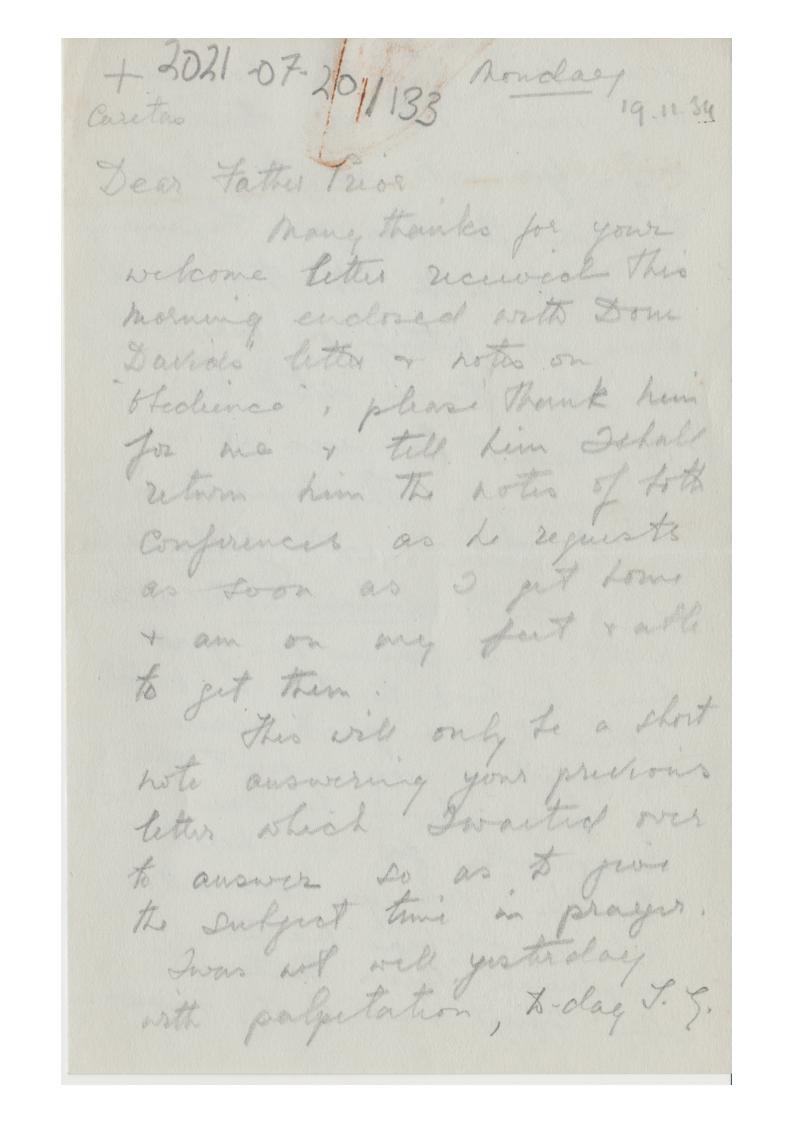 + 2021-07-20/1/133 Monday
Caritas 19.11.34
Dear Father Prior
Many thanks for your
welcome letter received this
morning enclosed with Dom
Davids' letter & notes on
'Obedience', please thank him
for me & tell him I shall
return him the notes of both
Conferences as he requests
as soon as I get home
& am on my feet & able
to get them.
This will only be a short
note answering your previous
letter which I waited over
to answer so as to give
the subject time in prayer.
I was not well yesterday
with palpitation, to-day T.G.